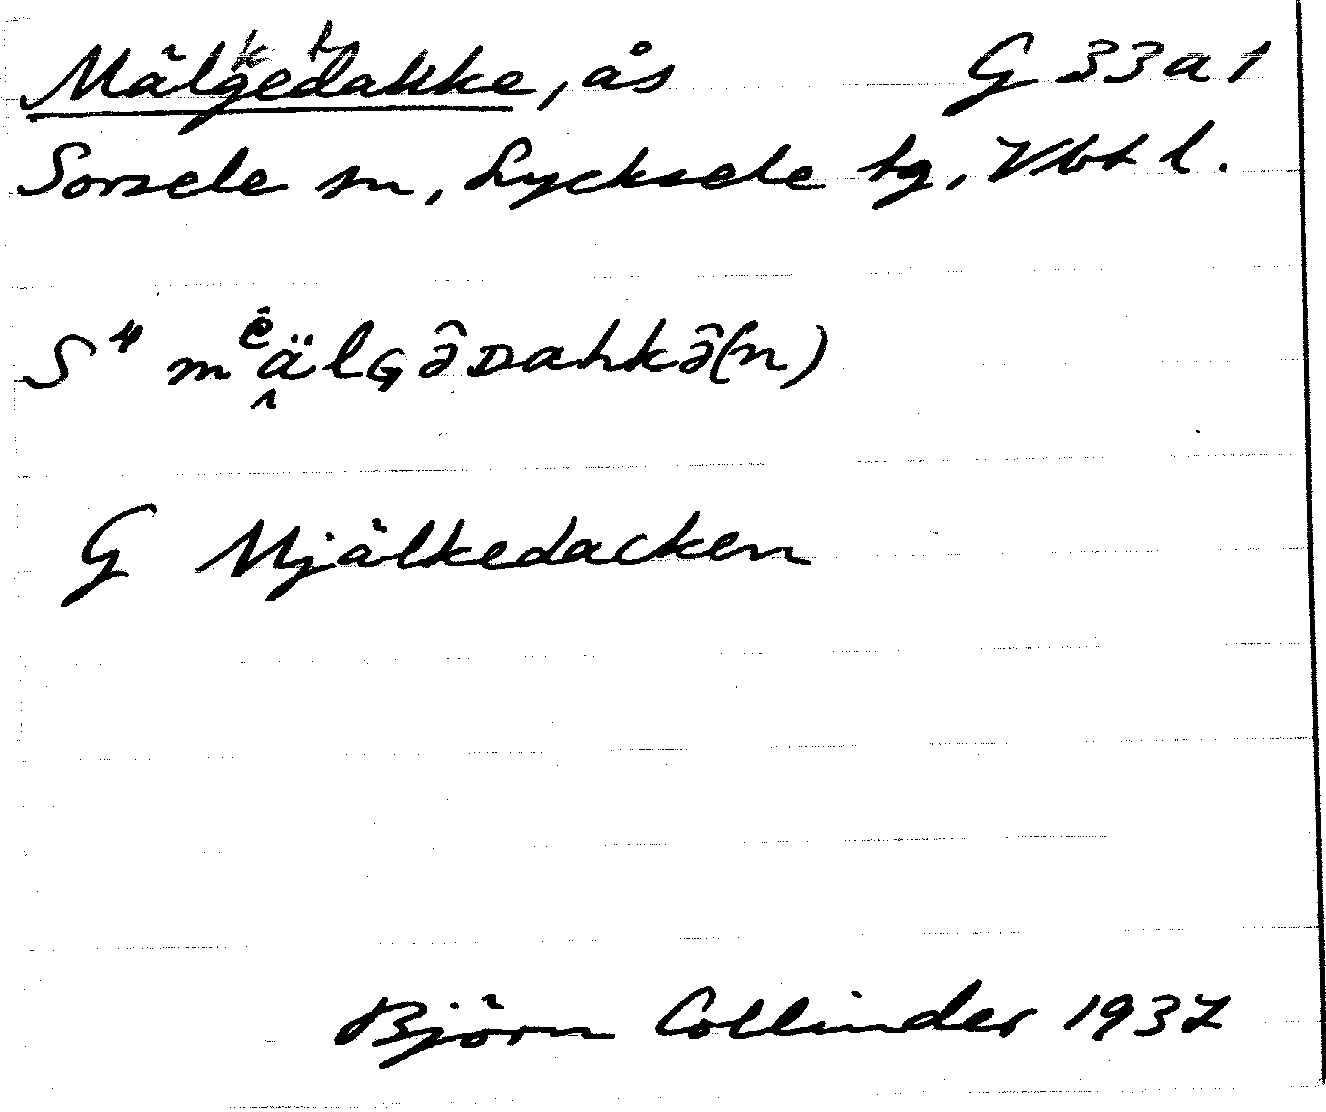 Mälgedakke, ås G 33a1
Sorsele sn, Lycksele tg, Vbt l.
S⁴ mᵉälGə̂Dahkə̂(n)
G Mjälkedacken
Björn Collinder 1937